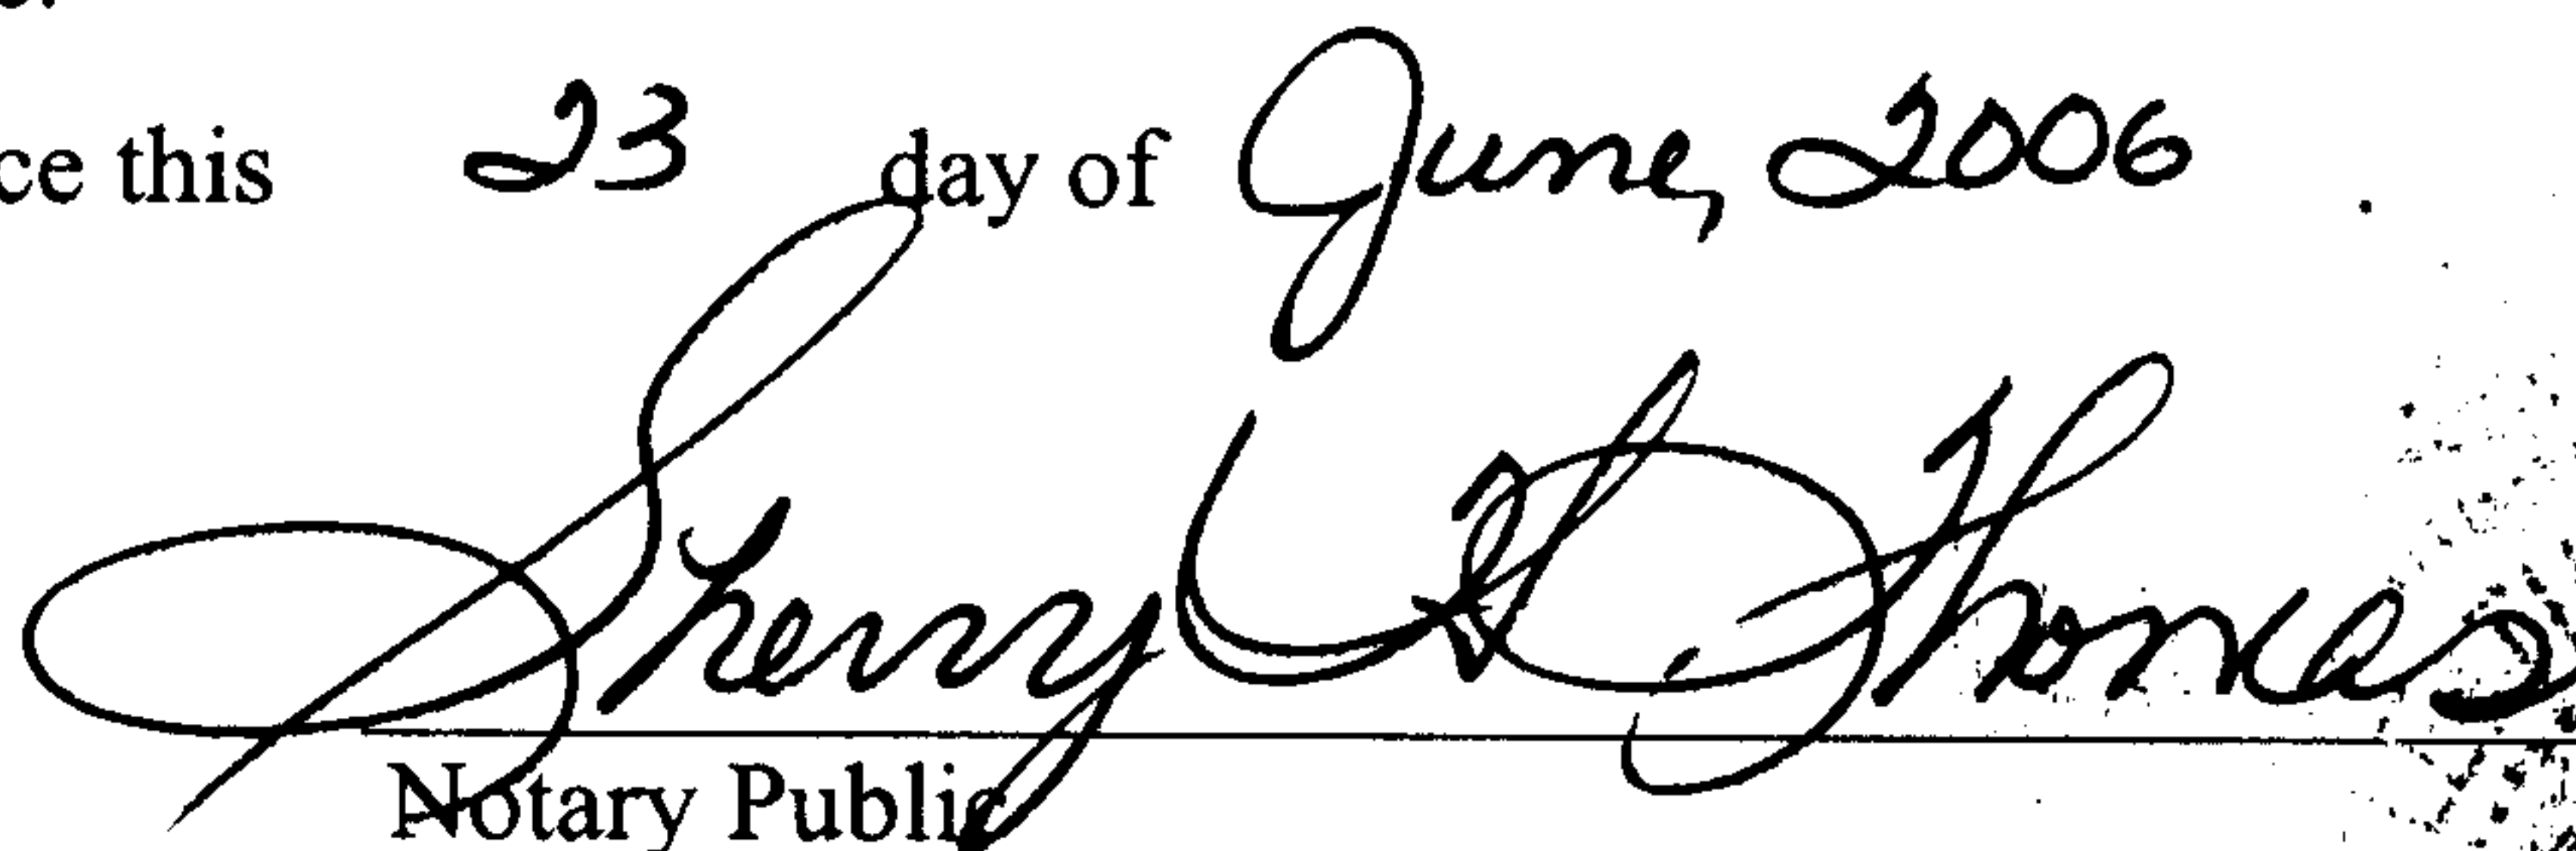 ce this 23 day of June, 2006 .
Sherry H Thomas
Notary Public